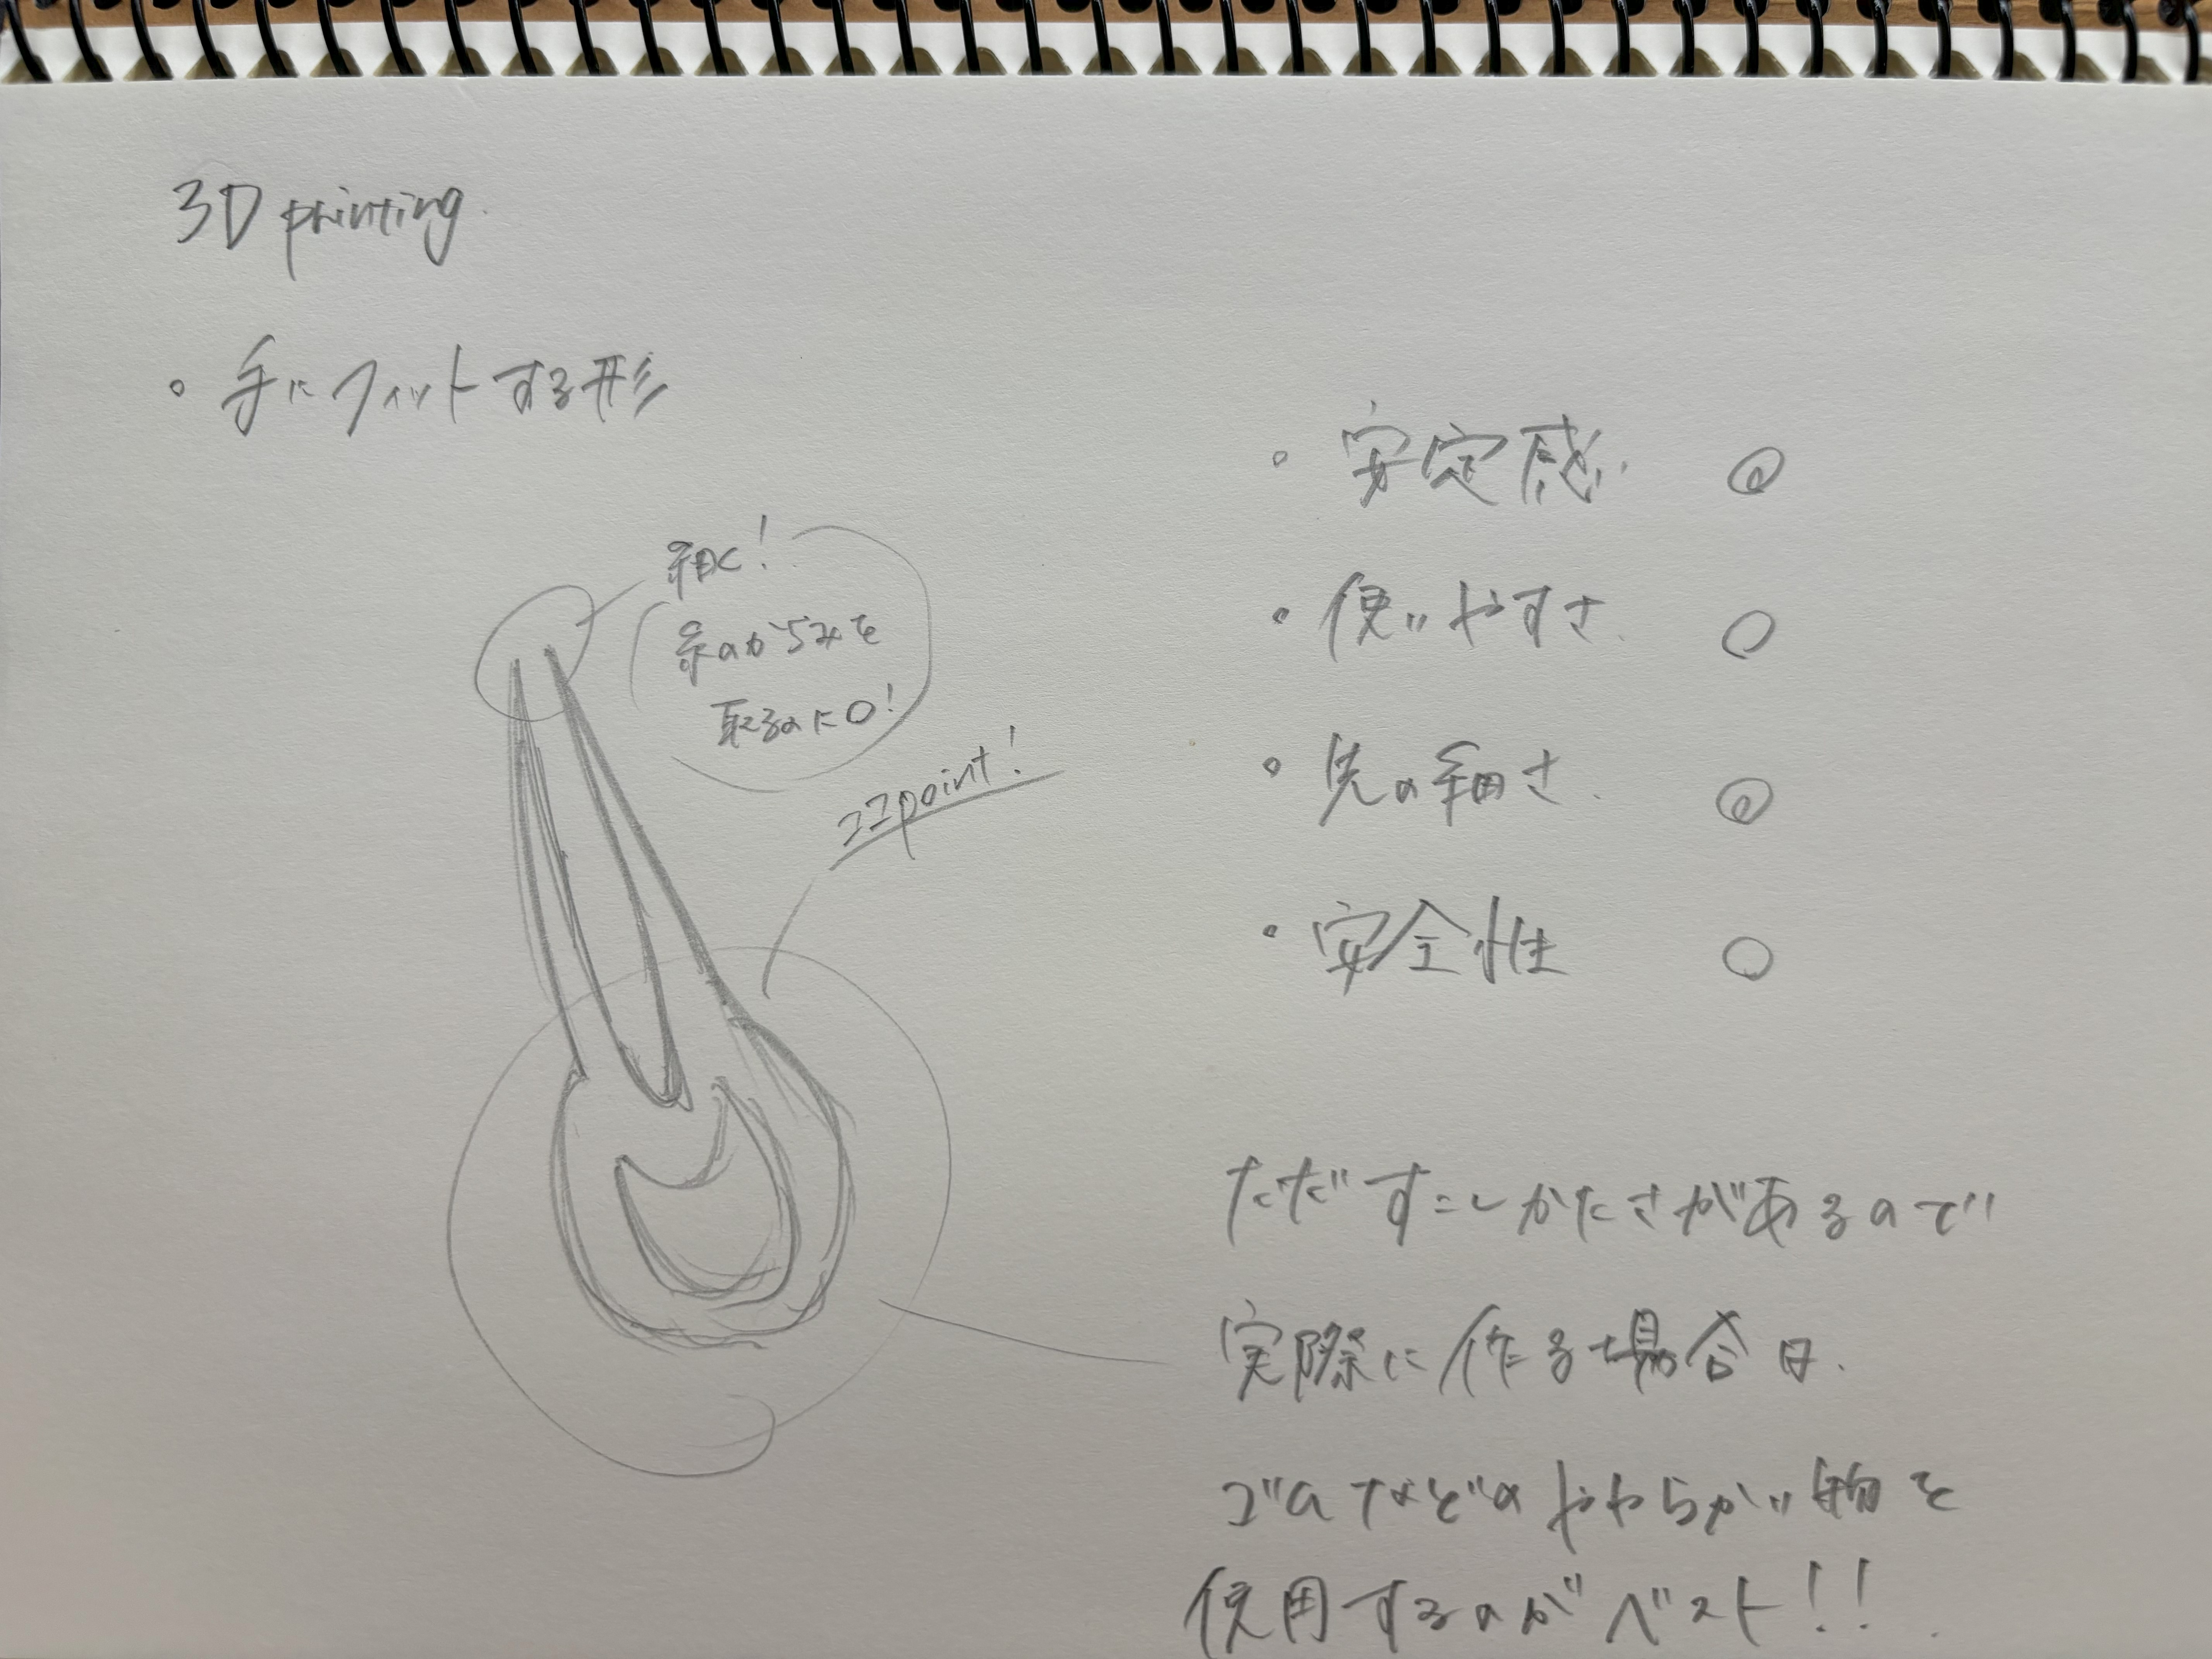 3D printing
・手にフィットする形
細く!
糸のからみを
取るのに○!
ココpoint!
・安定感 ◎
・使いやすさ ○
・先の細さ ◎
・安全性 ○
ただすこしかたさがあるので
実際に作る場合は、
ゴムなどのやわらかい物を
使用するのがベスト!!